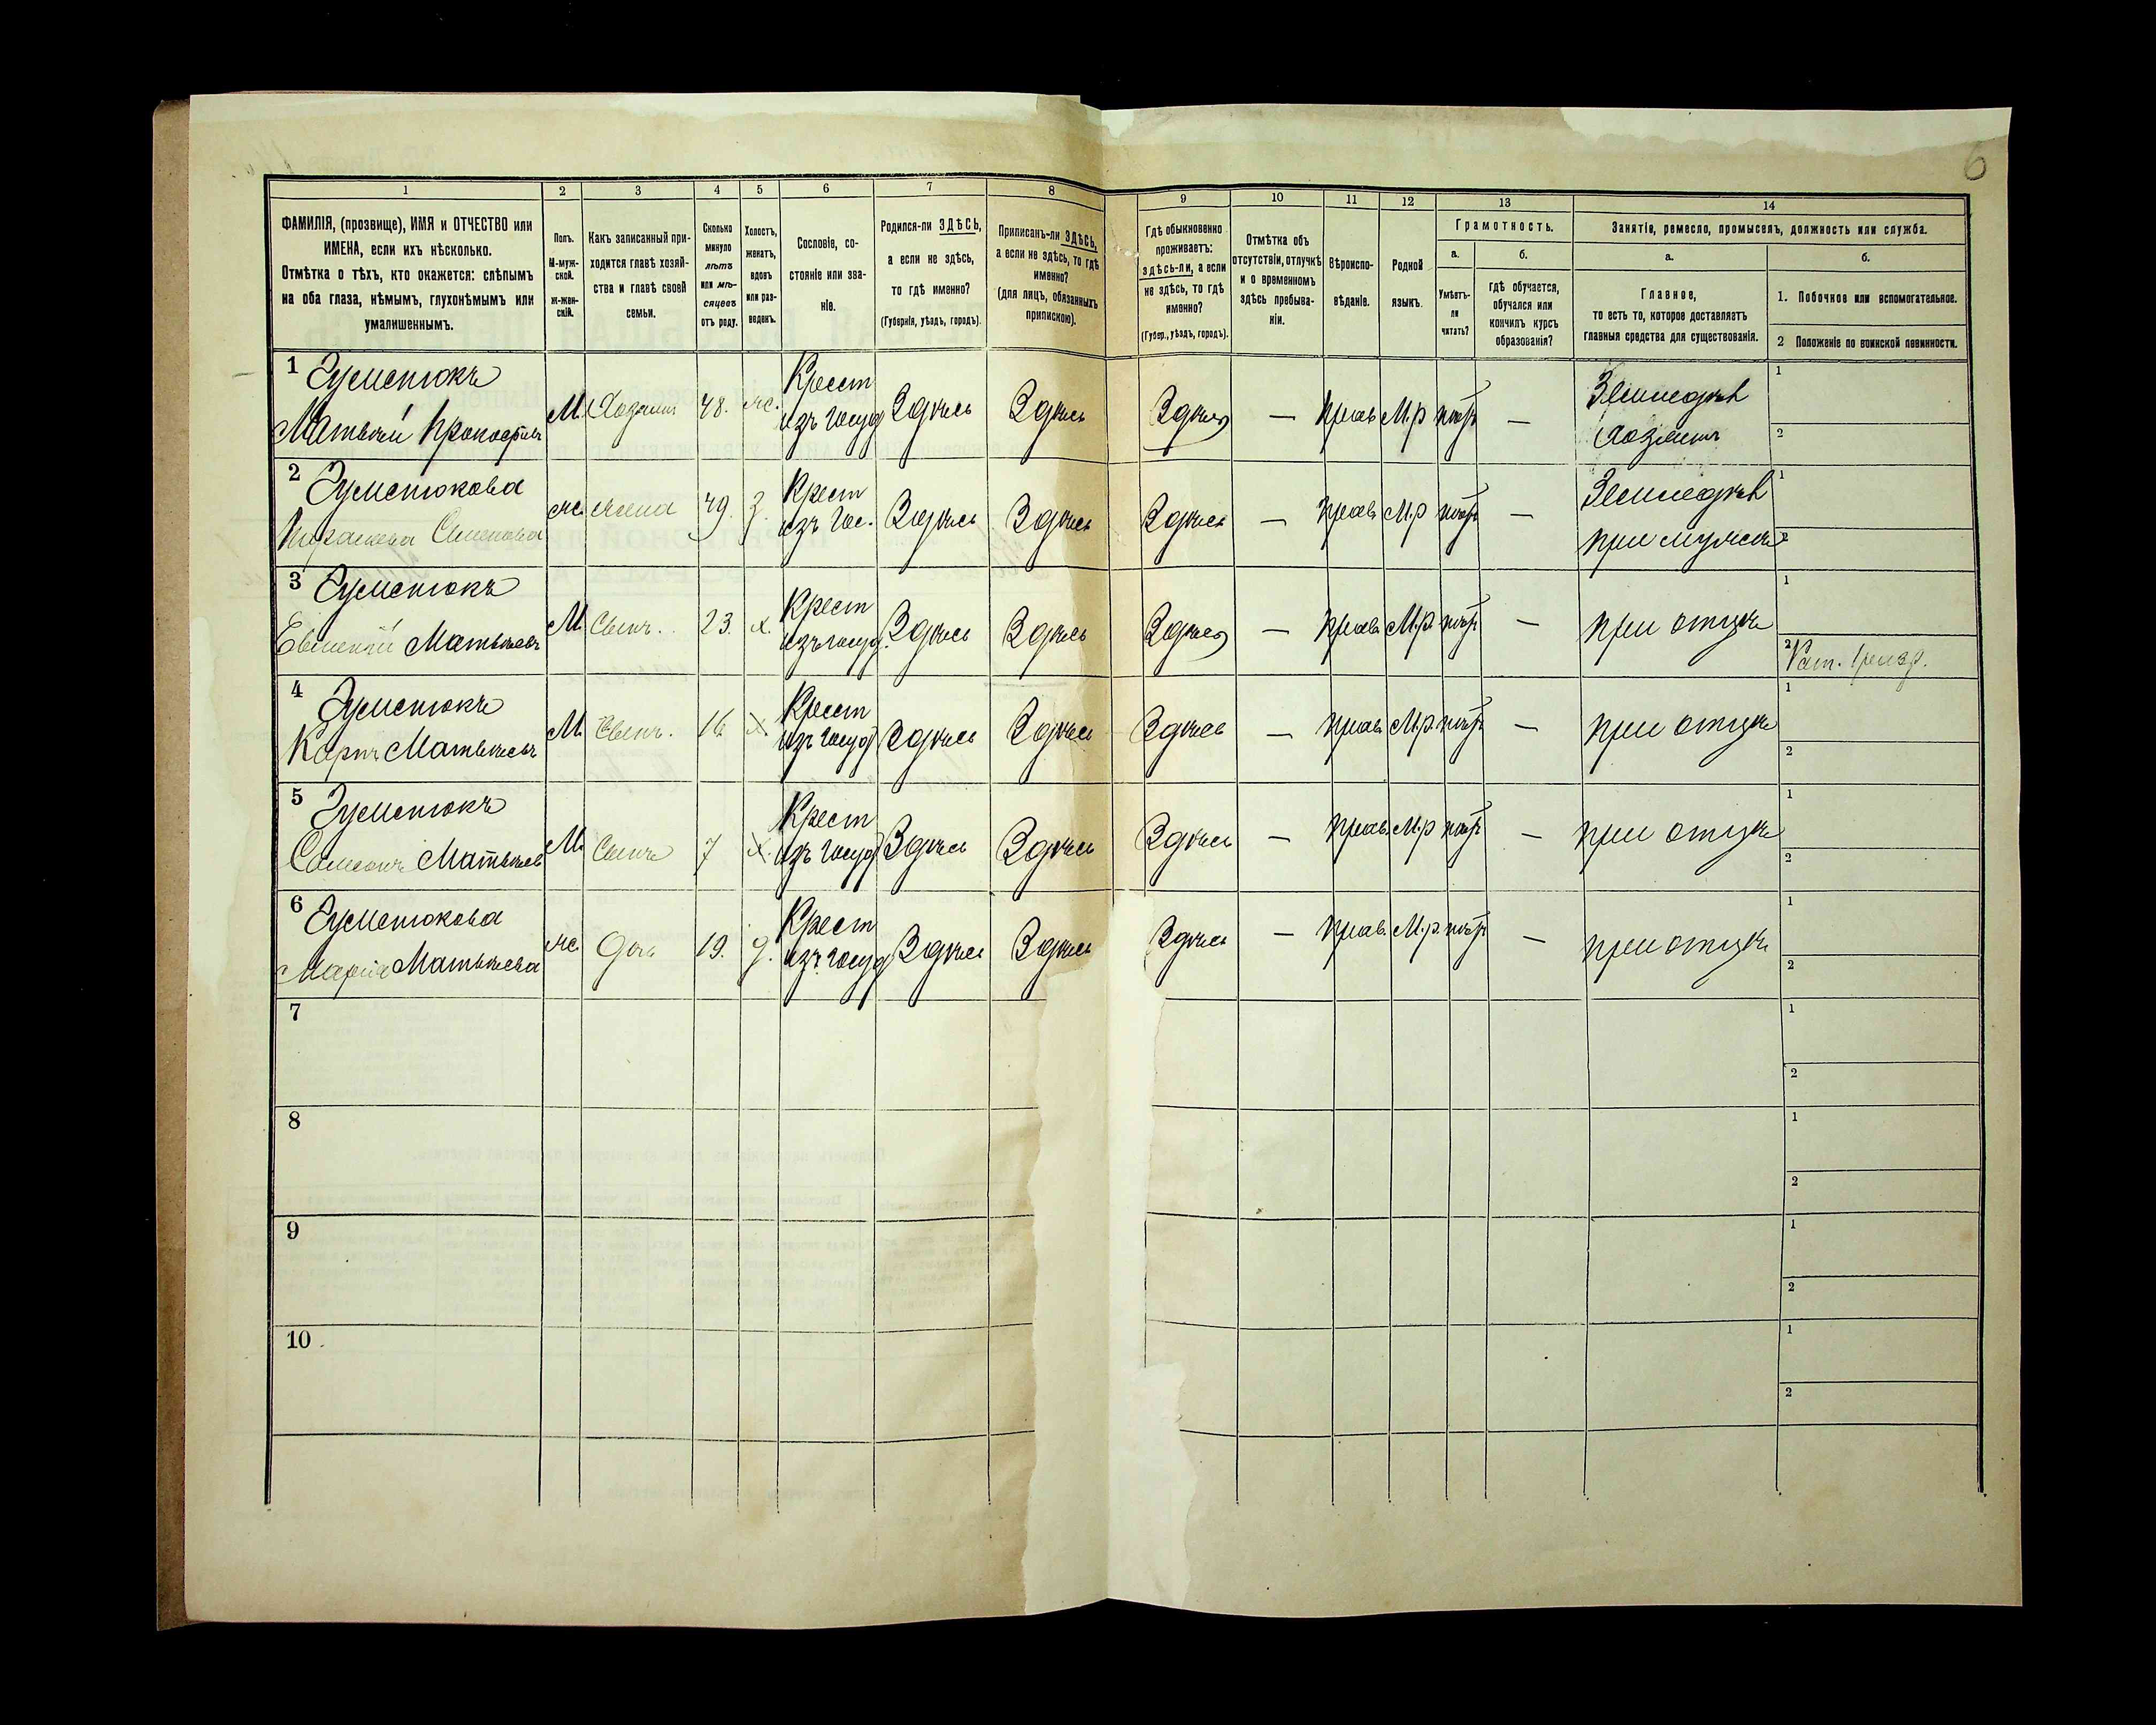 6
1
2
3
4
5
6
7
8
9
10
11
12
13
14
ФАМИЛІЯ, (прозвище), ИМЯ и ОТЧЕСТВО или
ИМЕНА, если ихъ нѣсколько.
Отмѣтка о тѣхъ, кто окажется: слѣпымъ
на оба глаза, нѣмымъ, глухонѣмымъ или
умалишеннымъ.
Полъ.
М-муж-
ской.
Ж-жен-
скій.
Какъ записанный при-
ходится главѣ хозяй-
ства и главѣ своей
семьи.
Сколько
минуло
лѣтъ
или мѣ-
сяцевъ
отъ роду.
Холостъ,
женатъ,
вдовъ
или раз-
веденъ.
Сословіе, со-
стояніе или зва-
ніе.
Родился-ли ЗДѢСЬ,
а если не здѣсь,
то гдѣ именно?
(Губернія, уѣздъ, городъ).
Приписанъ-ли ЗДѢСЬ,
а если не здѣсь, то гдѣ
именно?
(для лицъ, обязанныхъ
припискою).
Гдѣ обыкновенно
проживаетъ:
здѣсь-ли, а если
не здѣсь, то гдѣ
именно?
(Губер., уѣздъ, городъ).
Отмѣтка объ
отсутствіи, отлучкѣ
и о временномъ
здѣсь пребыва-
ніи.
Вѣроиспо-
вѣданіе.
Родной
языкъ.
Грамотность.
а.
Умѣетъ-
ли
читать?
б.
гдѣ обучается,
обучался или
кончилъ курсъ
образованія?
Занятія, ремесло, промыселъ, должность или служба.
а.
Главное,
то есть то, которое доставляетъ
главныя средства для существованія.
б.
1. Побочное или вспомогательное.
2 Положеніе по воинской повинности.
1
Матвѣй Прокофьевъ
М. Хозяинъ 48. ж. Крест
изъ госуд Здѣсь Здѣсь Здѣсь — прав М.р нѣтъ —
Земледѣл
хозяинъ
1
2
2
Параскева Семенова
ж. жена 49. з. Крест
изъ гос. Здѣсь Здѣсь Здѣсь — прав М.р нѣтъ —
Земледѣл
при мужѣ
1
2
3
Матвѣевъ
М. Сынъ. 23. х. Крест
изъ госуд. Здѣсь Здѣсь Здѣсь — прав. М.р. нѣтъ — при отцѣ
1
2
4
Карпъ Матвѣевъ
М. Сынъ. 16. х. Крест
изъ госуд Здѣсь Здѣсь Здѣсь — прав. М.р. нѣтъ — при отцѣ
1
2
5
Самсонъ Матвѣев
М. Сынъ 7 х. Крест
изъ госуд Здѣсь Здѣсь Здѣсь — прав. М.р нѣтъ — при отцѣ
1
2
6
Марія Матвѣева
ж. дочь 19. д. Крест
изъ госуд Здѣсь Здѣсь Здѣсь — прав. М.р. нѣтъ — при отцѣ
1
2
7
1
2
8
1
2
9
1
2
10
1
2